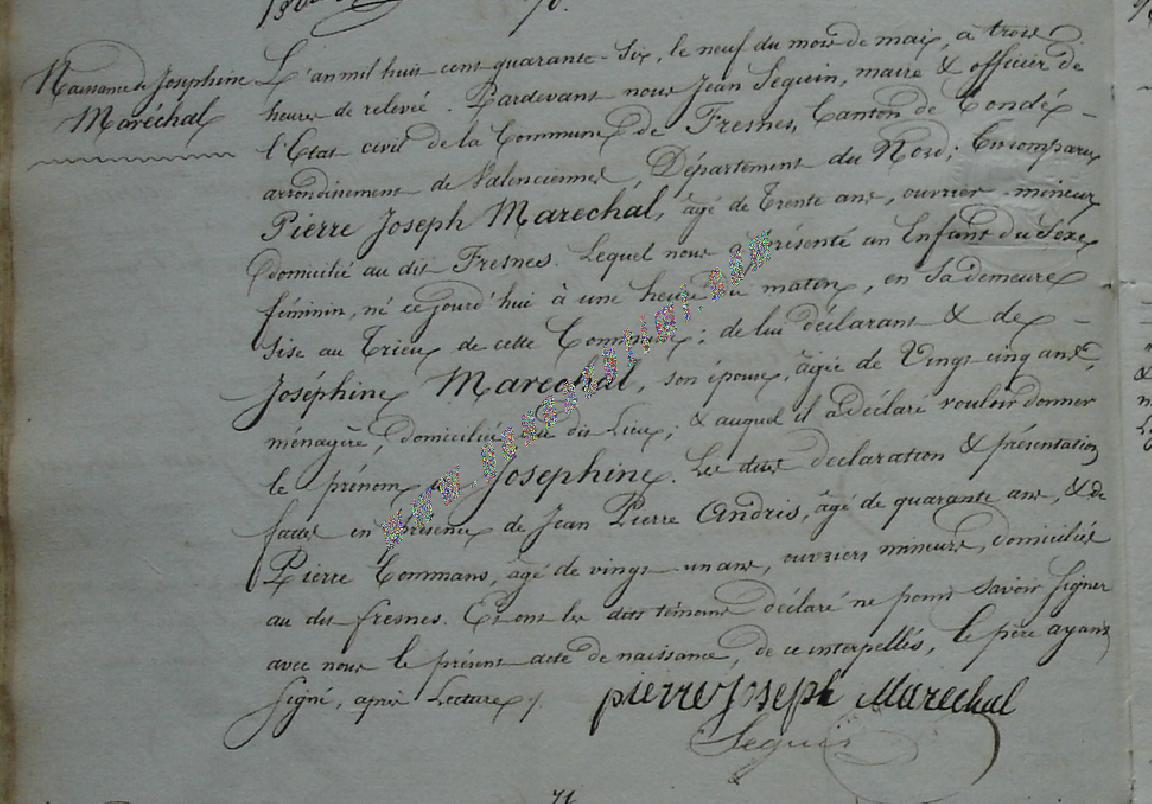 70.
Naissance de Joséphine
Maréchal
L'an mil huit cent quarante-six, le neuf du mois de mai, à trois
heures de relevée. Pardevant nous Jean Seguin, maire & officier de
l'Etat civil de la Commune de Fresnes, Canton de Condé,
arrondissement de Valenciennes, Département du Nord; Est comparu
Pierre Joseph Maréchal, âgé de trente ans, ouvrier mineur
domicilié au dit Fresnes. Lequel nous a présenté un Enfant du Sexe
féminin, né cejourd'hui à une heure du matin, en sa demeure
sise au Trieu de cette Commune; de lui déclarant & de
Joséphine Maréchal, son épouse, âgée de Vingt cinq ans,
ménagère, domiciliée au dit Lieu; & auquel il a déclaré vouloir donner
le prénom de Joséphine. Les dites déclaration & présentation
faites en présence de Jean Pierre Andris, âgé de quarante ans, & de
Pierre Commans, âgé de vingt-un ans, ouvriers mineurs, domiciliés
au dit fresnes. Et ont les dits témoins déclaré ne point savoir signer
avec nous le présent acte de naissance, de ce interpellés, le père ayant
signé, après Lecture.
pierre joseph Marechal
Seguin
71